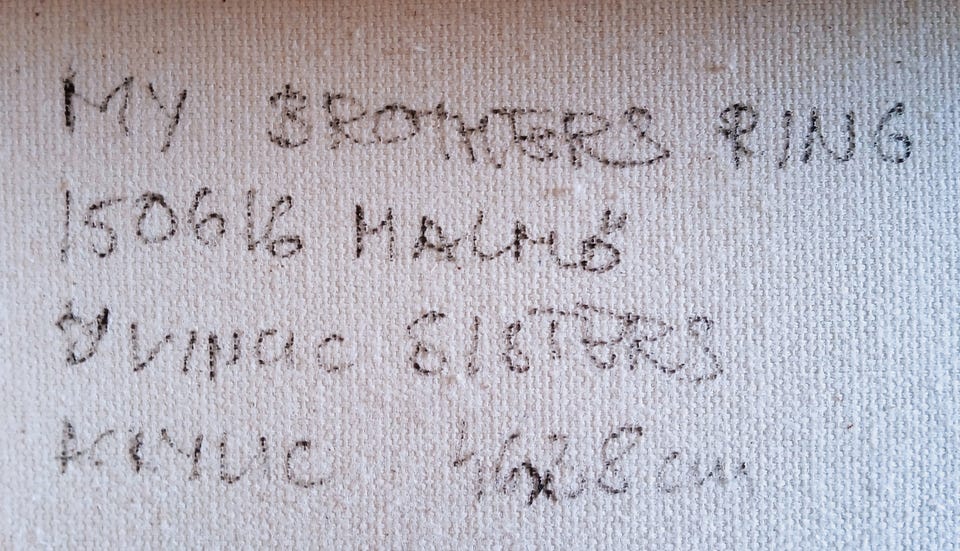 MY BROTHERS RING
150616 MALMÖ
SISTERS
46x38 cm